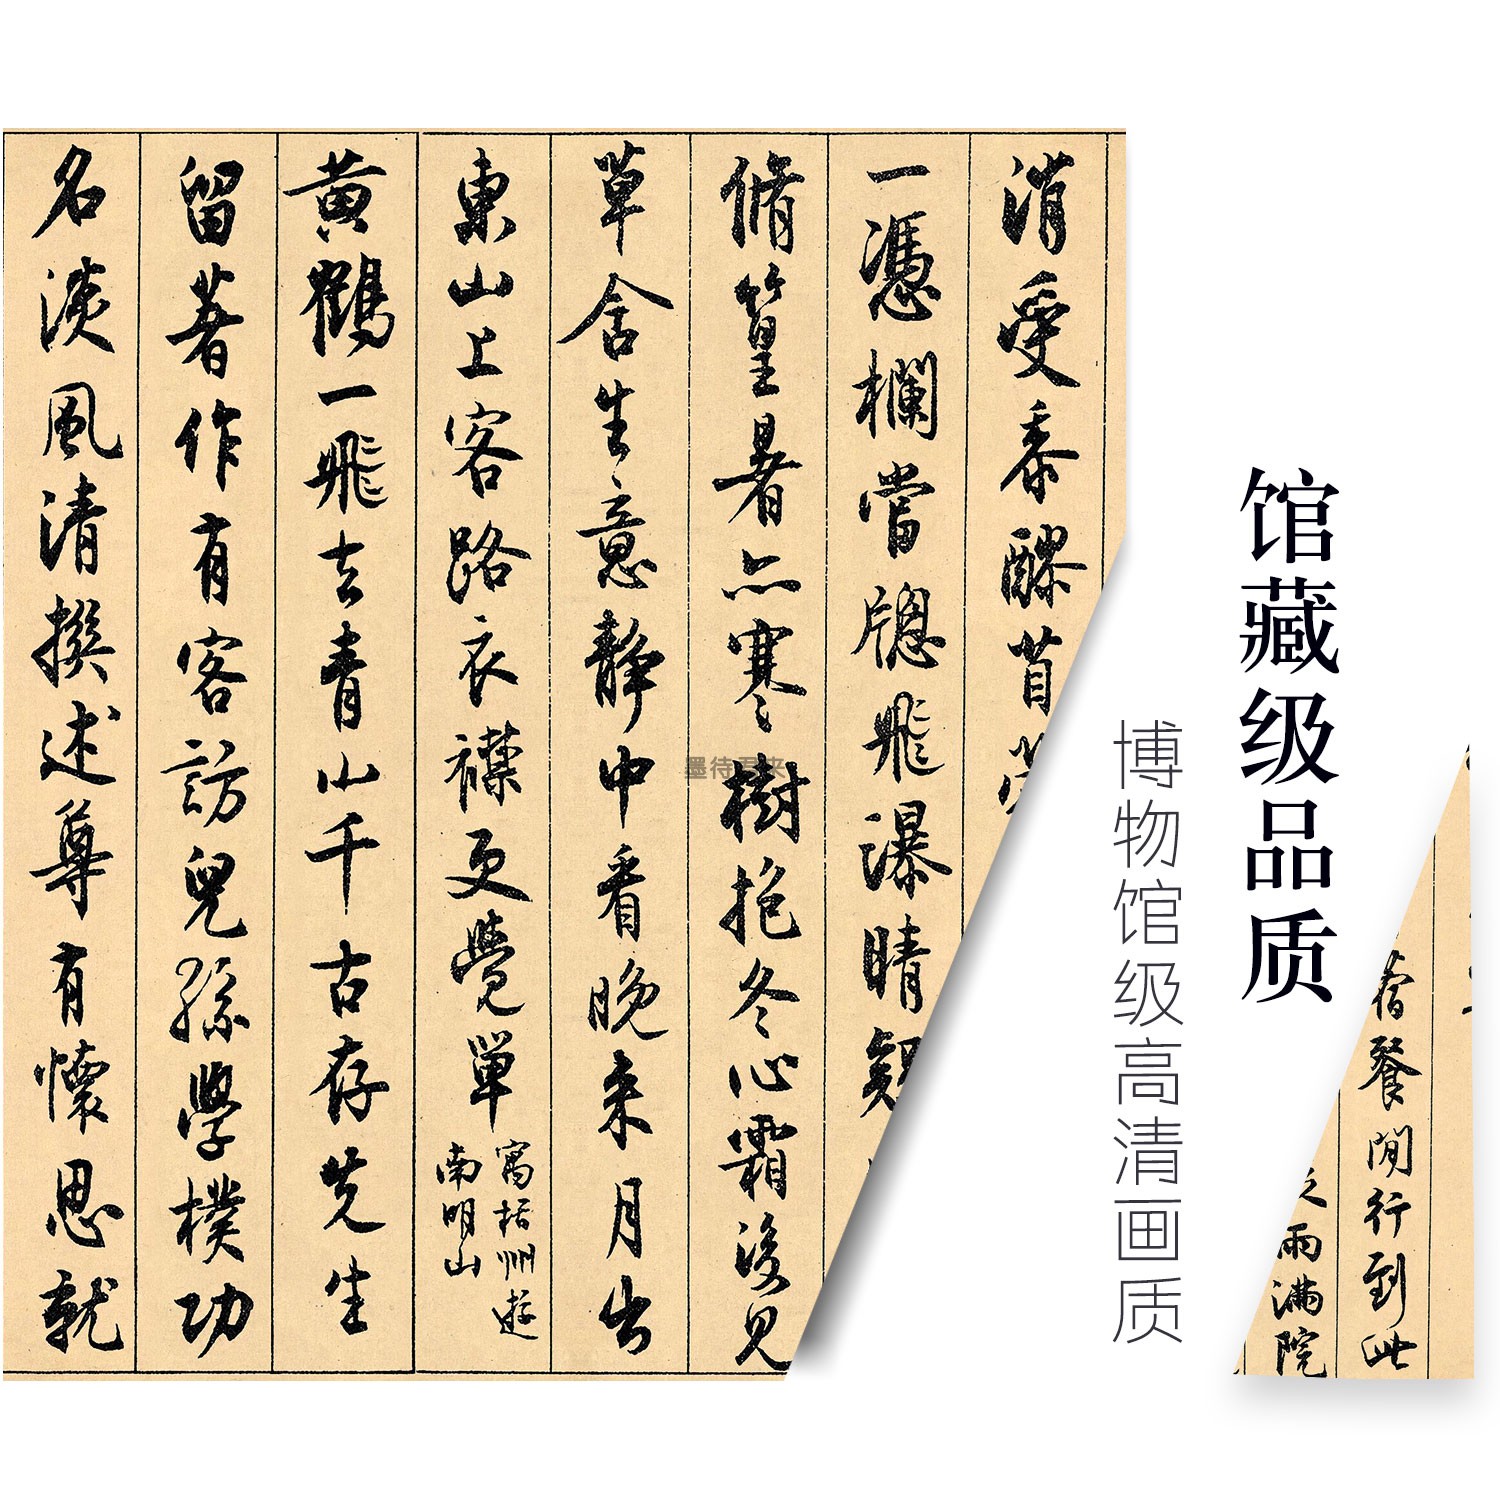 消受黍醪苜
一憑欄當牕飛瀑晴疑
脩篁暑亦寒樹抱冬心霜後見
草舍生意靜中看晚來月出
東山上客路衣襟更覺單
寓括州遊
南明山
黃鶴一飛去青山千古存先生
留著作有客訪兒孫學樸功
名淡風清撰述尊有懷思就
墨待君来
馆藏级品质
博物馆级高清画质
餐閒行到此
雨滿院